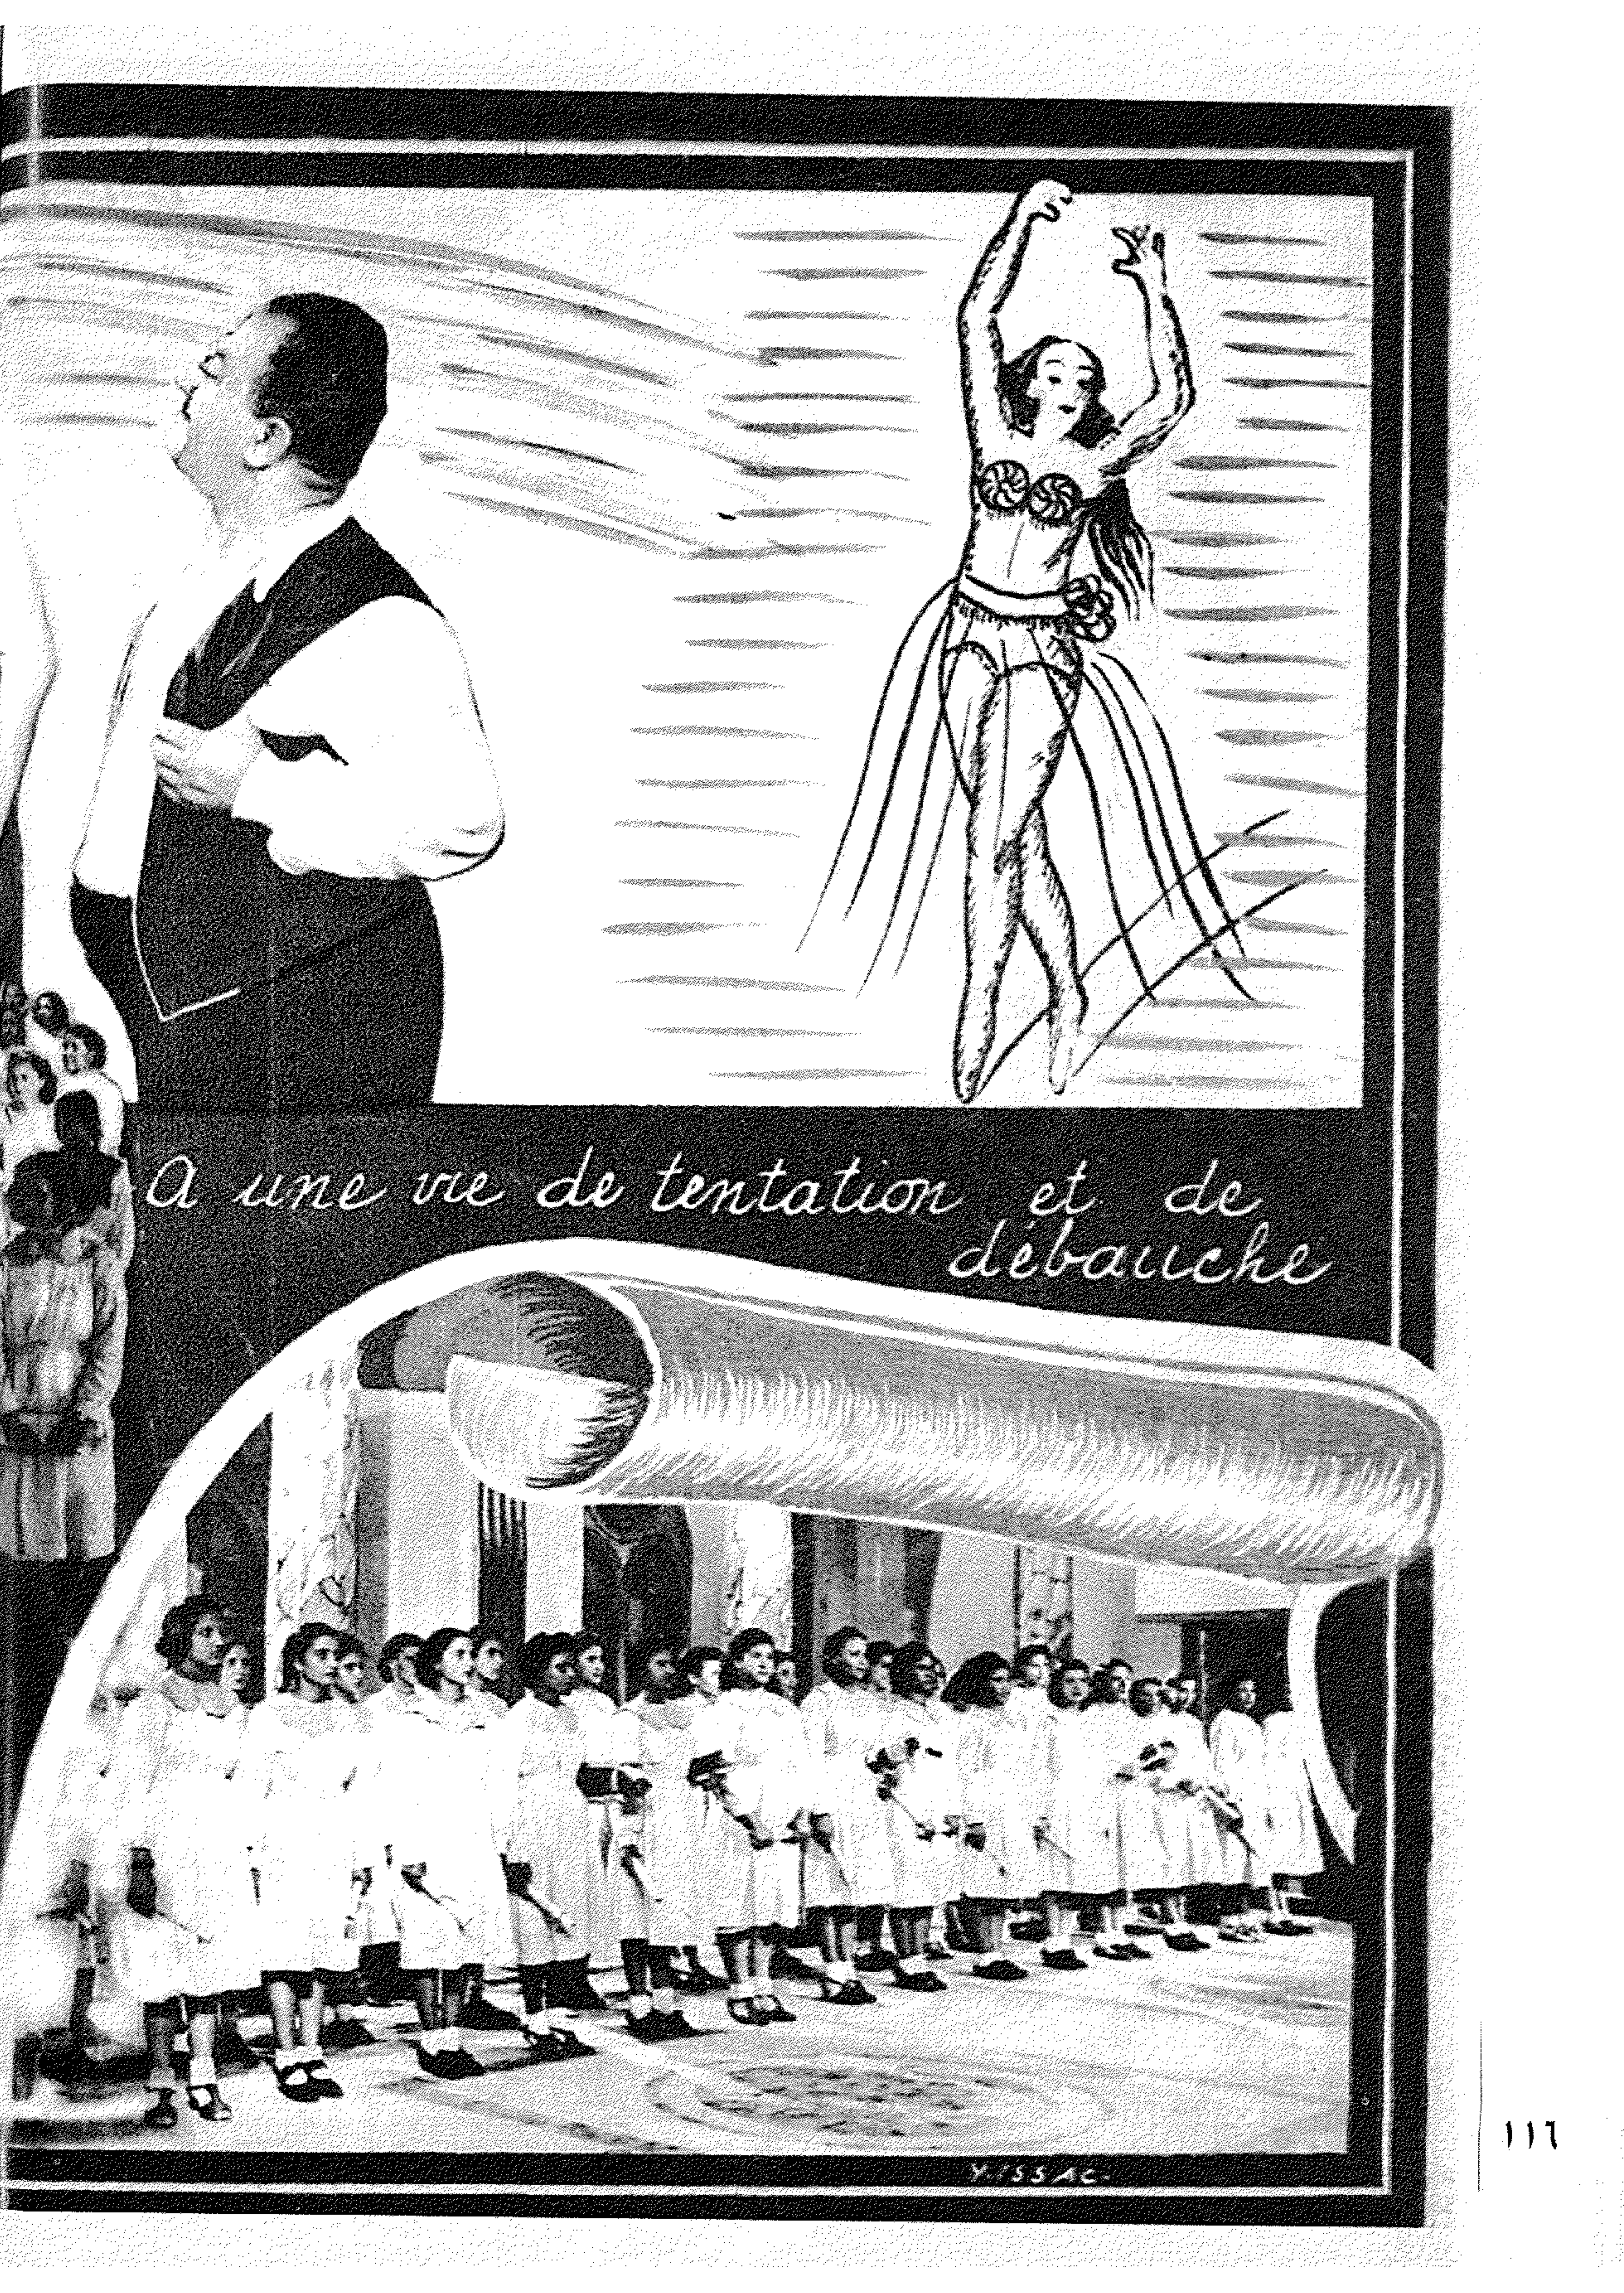 A une vie de tentation et de
débauche
Y.ISSAC-
١١٦